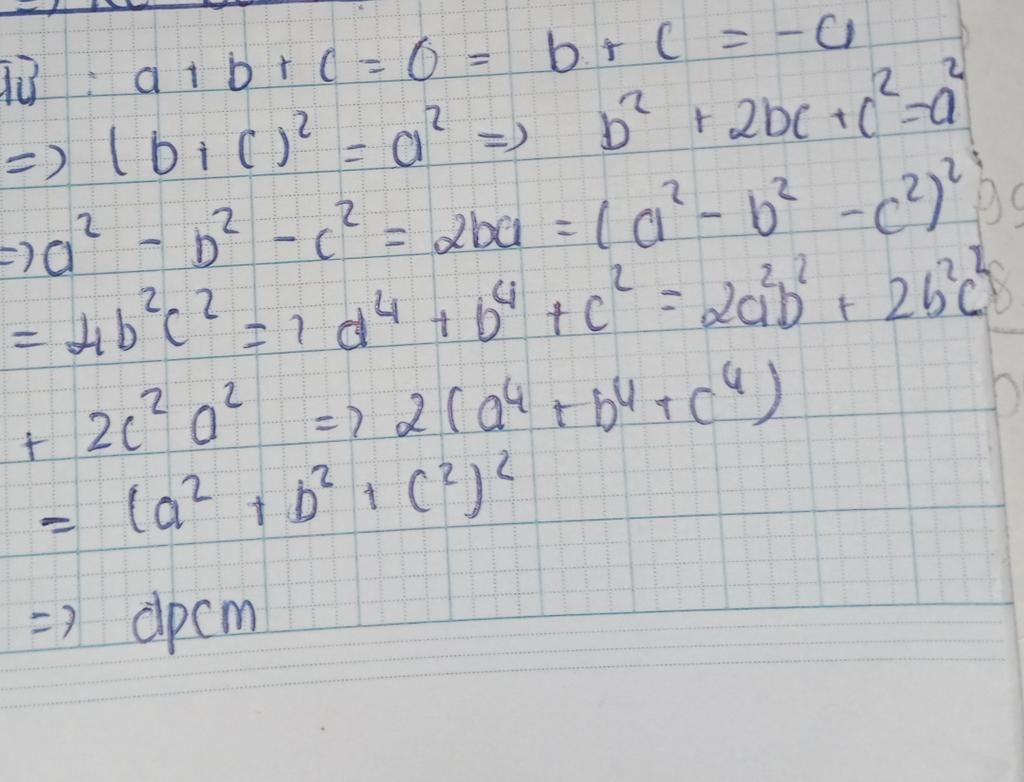 Từ : a + b + c = 0 = b + c = -a
=> (b + c)² = a² => b² + 2bc + c² = a²
=> a² - b² - c² = 2ba = (a² - b² - c²)²
= 4b²c² => a⁴ + b⁴ + c² = 2a²b² + 2b²c²
+ 2c² a² => 2(a⁴ + b⁴ + c⁴)
= (a² + b² + c²)²
=> dpcm